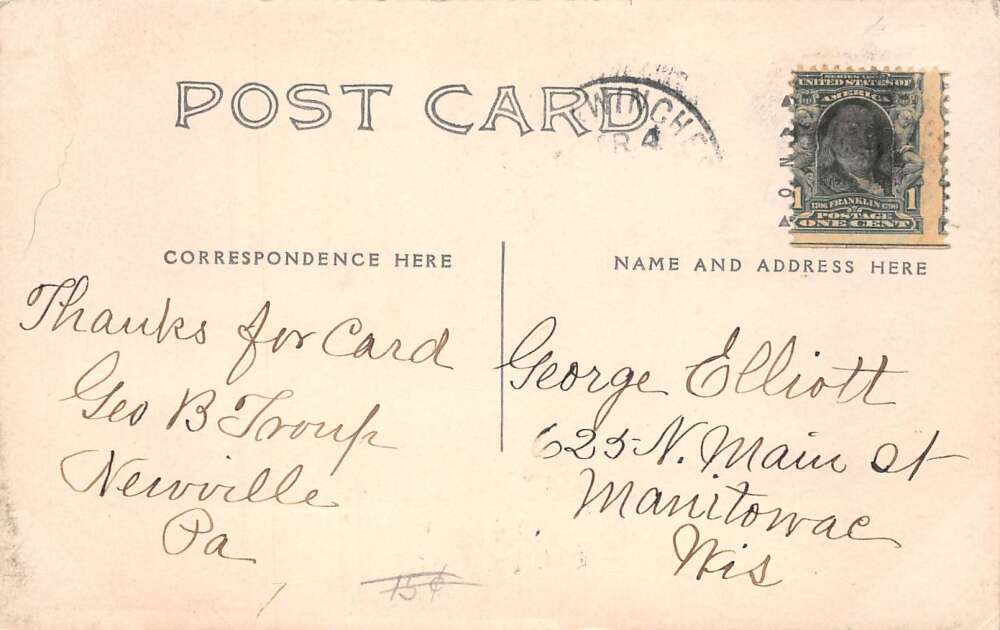 POST CARD
WINCHE
R.4
SERIES 1902
UNITED STATES OF
AMERICA
1 1706 FRANKLIN 1790 1
POSTAGE
ONE CENT
CORRESPONDENCE HERE
Thanks for Card
Geo B Troup
Newville
Pa
15¢
NAME AND ADDRESS HERE
George Elliott
625 N. Main St
Manitowac
Wis